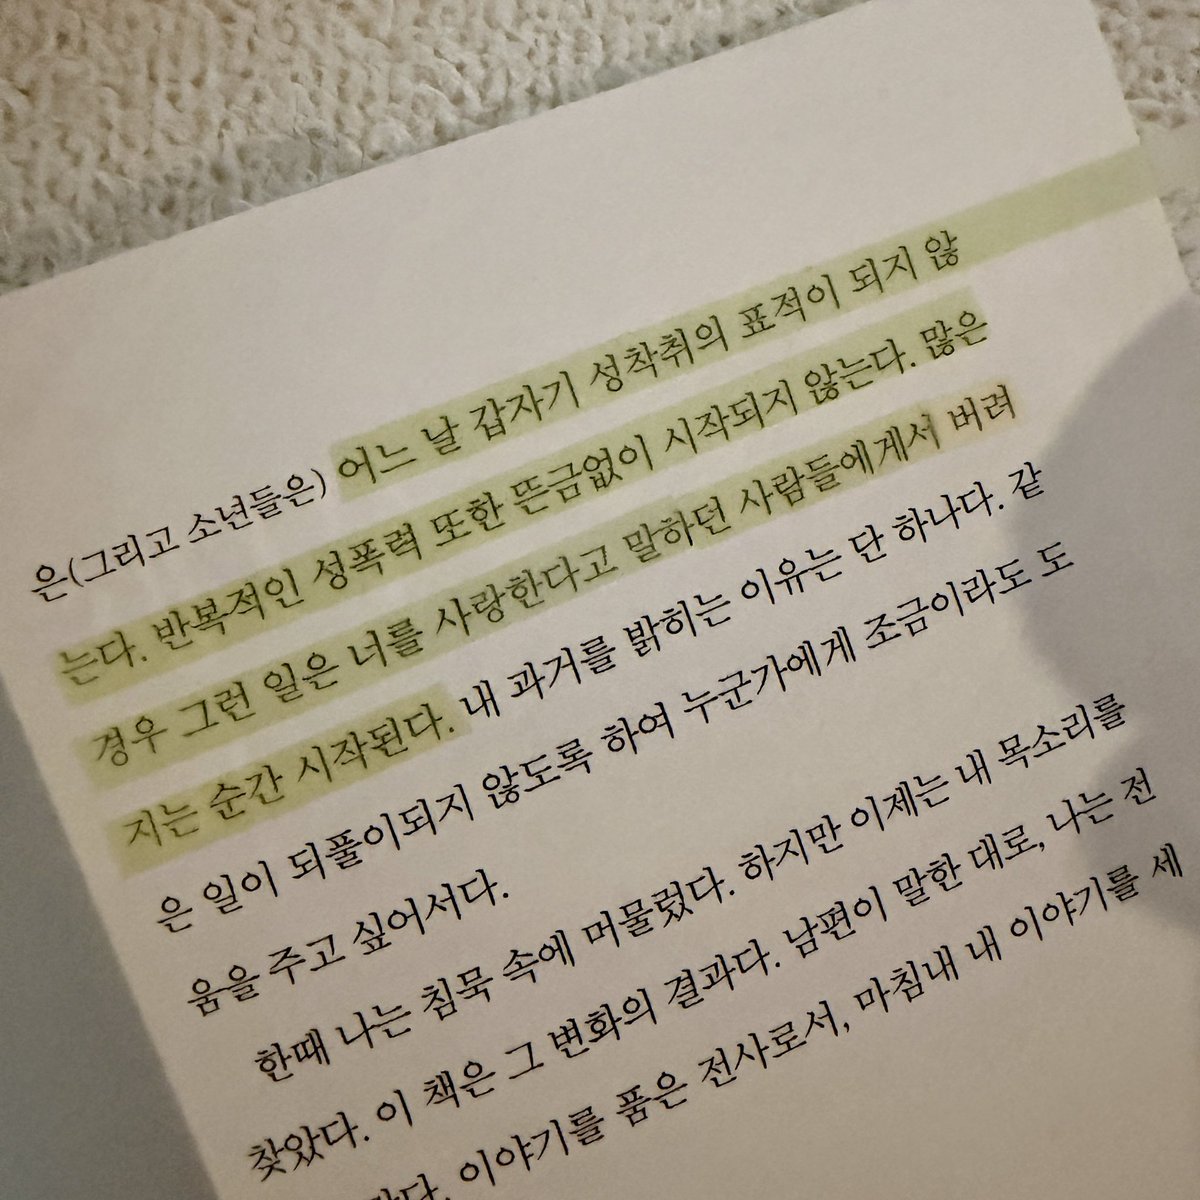 은(그리고 소년들은) 어느 날 갑자기 성착취의 표적이 되지 않
는다. 반복적인 성폭력 또한 뜬금없이 시작되지 않는다. 많은
경우 그런 일은 너를 사랑한다고 말하던 사람들에게서 버려
지는 순간 시작된다. 내 과거를 밝히는 이유는 단 하나다. 같
은 일이 되풀이되지 않도록 하여 누군가에게 조금이라도 도
움을 주고 싶어서다.
한때 나는 침묵 속에 머물렀다. 하지만 이제는 내 목소리를
찾았다. 이 책은 그 변화의 결과다. 남편이 말한 대로, 나는 전
이야기를 품은 전사로서, 마침내 내 이야기를 세